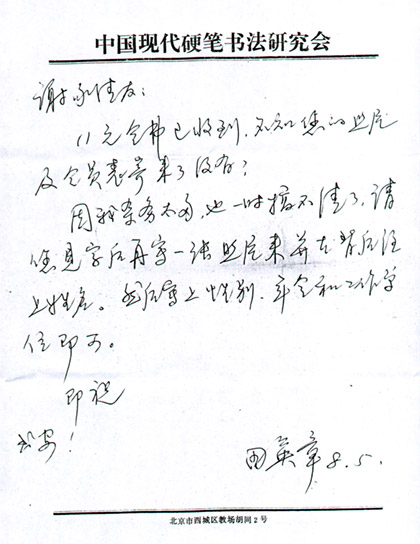 中国现代硬笔书法研究会
谢家佳友：
11元会费已收到，不知您的照片
及会员表寄来了没有？
因我杂务太多，也一时搞不清了，请
您见字后再寄一张照片来并在背后注
上姓名。然后写上性别、年令和工作单
位即可。
即祝
书安！
田英章 8.5.
北京市西城区教场胡同2号